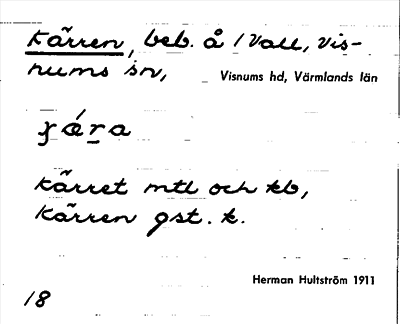 Kärren, beb. å /Vall, Vis-
nums sn,
Visnums hd, Värmlands län
kärret mtl och kb,
Kärren gst. k.
Herman Hultström 1911
18